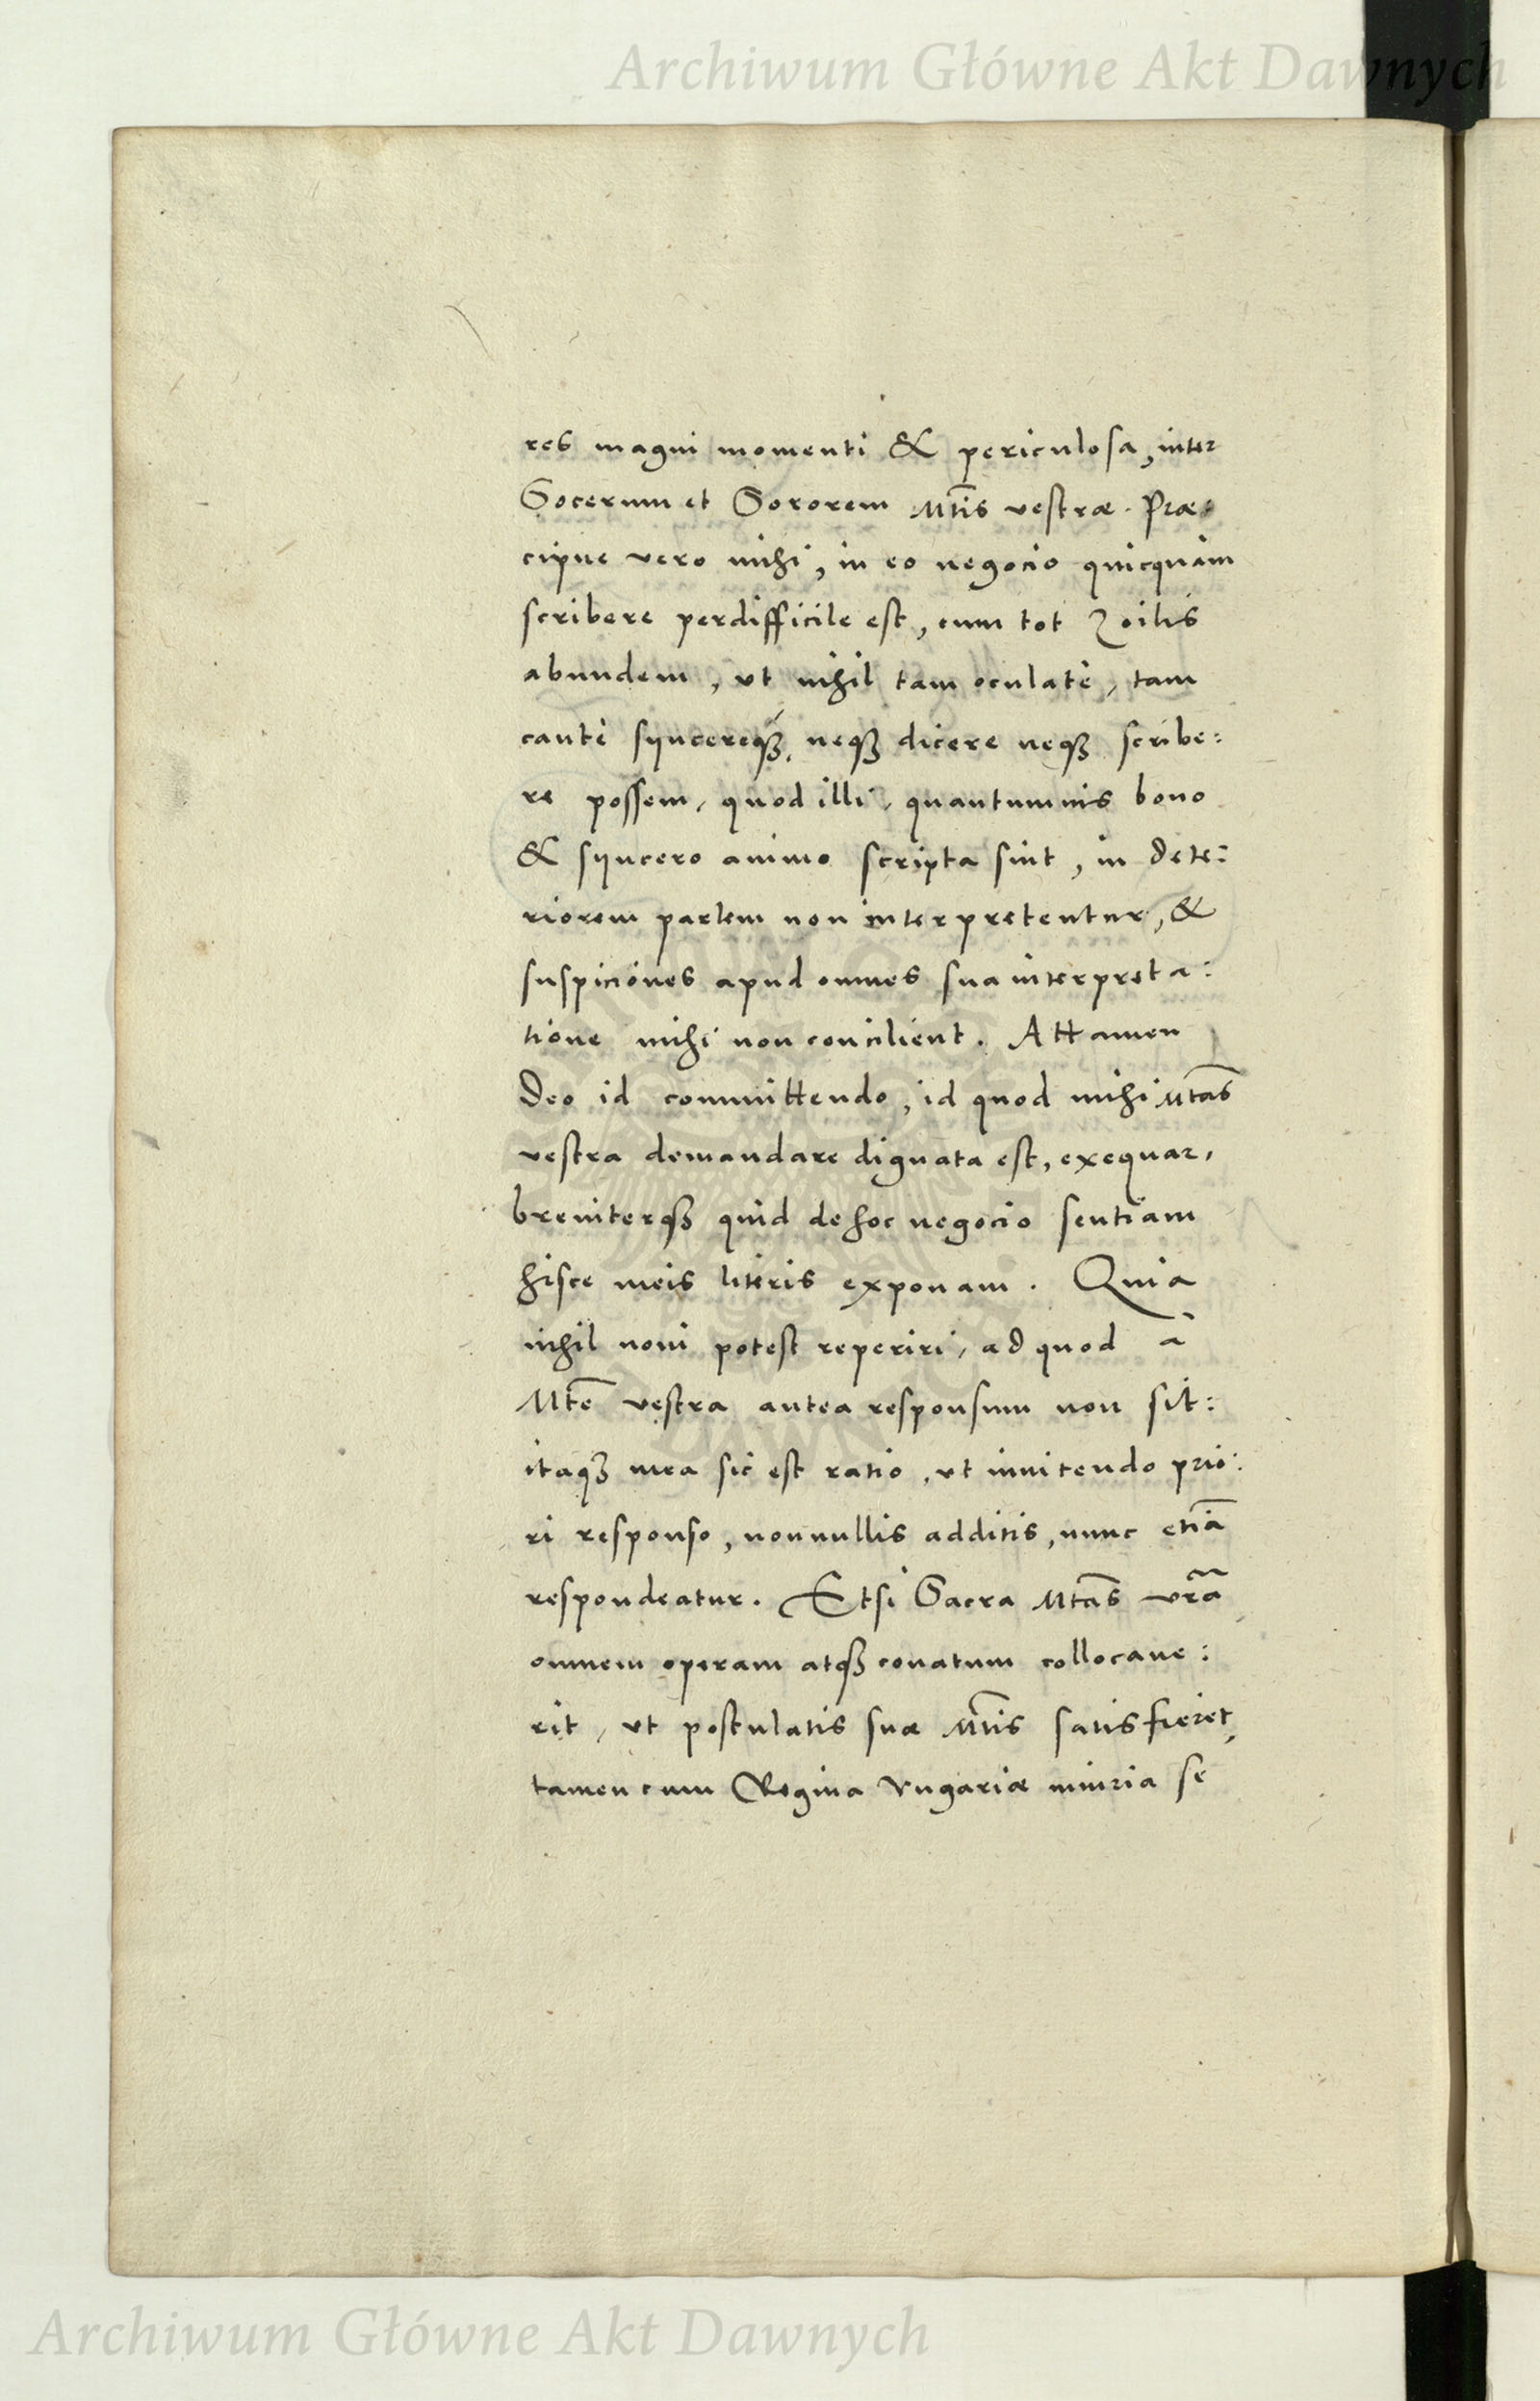 Archiwum Główne Akt Dawnych
res magni momenti & periculosa, inter
Socerum et Sororem Mtis vestræ. Præ:
cipue vero mihi, in eo negocio quicquam
scribere perdifficile est, cum tot Zoilis
abundem, ut nihil tam oculatè, tam
cautè sÿncereqꝫ, neqꝫ dicere neqꝫ scribe:
re possem, quod illi, quantumuis bono
& sÿncero animo scripta sint, in dete:
riorem partem non interpretentur, &
suspiciones apud omnes sua interpreta:
tione mihi non concilient. Attamen
Deo id committendo, id quod mihi Mtas
vestra demandare dignata est, exequar,
breuiterqꝫ quid de hoc negocio sentiam
hisce meis literis exponam. Quia
nihil noui potest reperiri, ad quod à
Mte vestra antea responsum non sit:
itaqꝫ mea sic est ratio, ut innitendo prio:
ri responso, nonnullis additis, nunc etiā
respondeatur. Etsi Sacra Mtas vr̃a
omnem operam atqꝫ conatum collocaue:
rit, ut postulatis suæ Mtis satisfieret,
tamen cum Regina Vngariæ iniuria se
Archiwum Główne Akt Dawnych